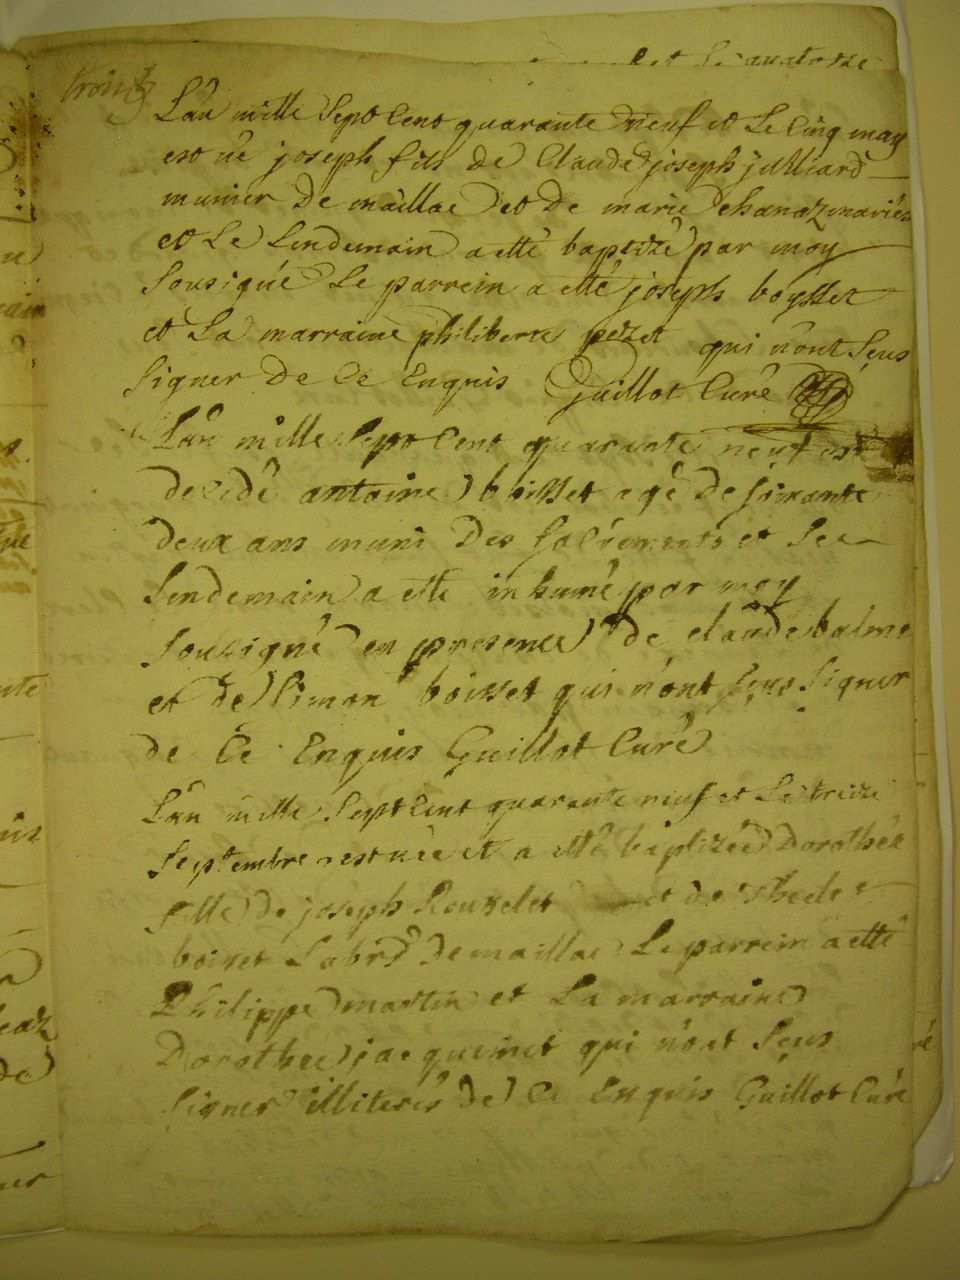 Lan mille Sept Cent quarante neuf et Le Cinq may
est né joseph fils de Claude joseph julliard
munier De maillac et de marie chanaz mariés
et Le Lendemain a etté baptizé par moy
Sousigné Le parrein a etté joseph boysset
et La marraine philiberte pezet qui n'ont Seus
Signer de Ce Enquis Guillot Curé
Lan mille Sept Cent quarante neuf est
decedé antoine boisset agé De soixante
deux ans muni Des sacrements et Le
Lendemain a etté inhumé par moy
Sousigné en presence de claude balme
et de Simon boisset qui n'ont Seus Signer
de Ce Enquis Guillot Curé
Lan mille Sept Cent quarante neuf et Le treize
Septembre est née et a etté baptizée Dorothée
fille de joseph Rouzelet et de
boisset Labrs De maillac Le parrein a etté
Philippe martin et La marraine
Dorothée jacquinet qui n'ont Seus
Signer illiterés de Ce Enquis Guillot Curé